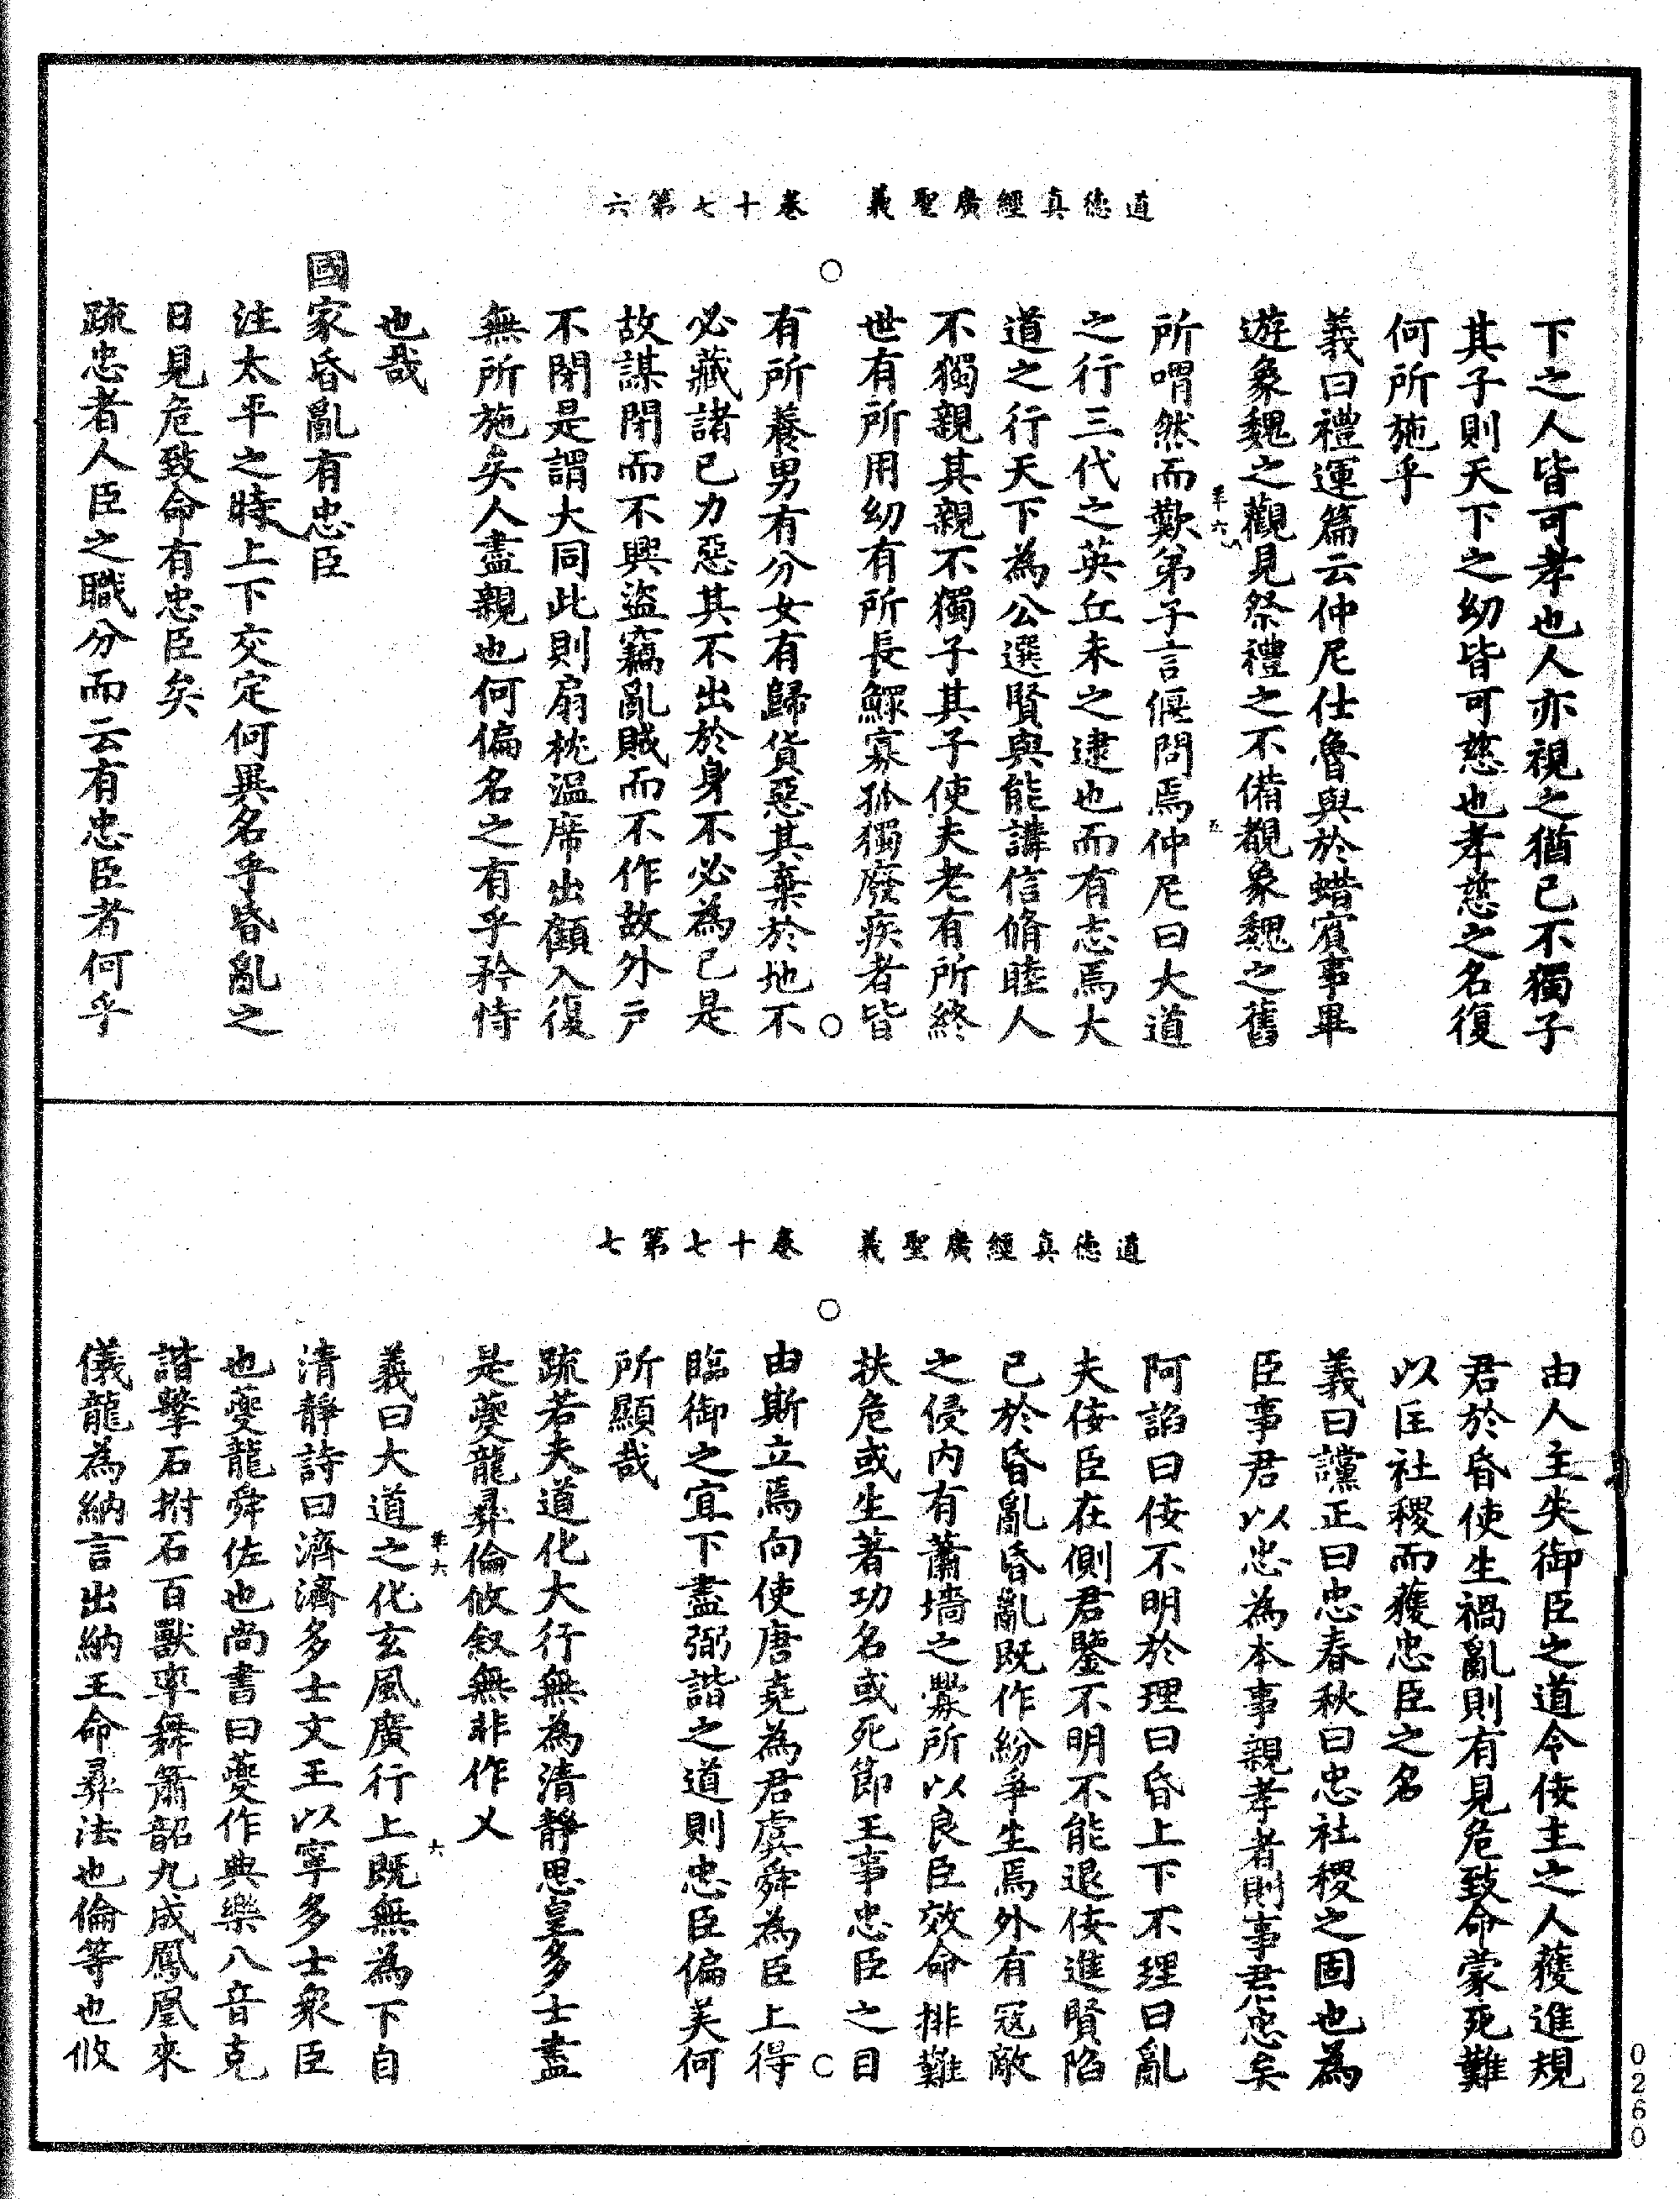 道德真經廣聖義　卷十七第六
下之人皆可孝也人亦視之猶已不獨子
其子則天下之幼皆可慈也孝慈之名復
何所施乎
義曰禮運篇云仲尼仕魯與於蜡賓事畢
遊象魏之觀見祭禮之不備覩象魏之舊
所喟然而歎弟子言偃問焉仲尼曰大道
之行三代之英丘未之逮也而有志焉大
道之行天下為公選賢與能講信脩睦人
不獨親其親不獨子其子使夫老有所終
世有所用幼有所長鰥寡孤獨廢疾者皆
有所養男有分女有歸貨惡其棄於地不
必藏諸已力惡其不出於身不必為已是
故謀閉而不興盜竊亂賊而不作故外戶
不閉是謂大同此則扇枕溫席出顧入復
無所施矣人盡親也何偏名之有乎矜恃
也哉
國家昏亂有忠臣
注太平之時上下交定何異名乎昏亂之
日見危致命有忠臣矣
疏忠者人臣之職分而云有忠臣者何乎
道德真經廣聖義　卷十七第七
由人主失御臣之道令佞主之人獲進規
君於昏使生禍亂則有見危致命蒙死難
以匡社稷而獲忠臣之名
義曰讜正曰忠春秋曰忠社稷之固也為
臣事君以忠為本事親孝者則事君忠矣
阿諂曰佞不明於理曰昏上下不理曰亂
夫佞臣在側君鑒不明不能退佞進賢陷
已於昏亂昏亂既作紛爭生焉外有寇敵
之侵內有蕭墻之釁所以良臣效命排難
扶危或生著功名或死節王事忠臣之目
由斯立焉向使唐堯為君虞舜為臣上得
臨御之宜下盡弼諧之道則忠臣偏美何
所顯哉
疏若夫道化大行無為清靜思皇多士盡
是夔龍彞倫攸敘無非作乂
義曰大道之化玄風廣行上既無為下自
清靜詩曰濟濟多士文王以寧多士衆臣
也夔龍舜佐也尚書曰夔作典樂八音克
諧擊石拊石百獸率舞簫韶九成鳳凰來
儀龍為納言出納王命彞法也倫等也攸
0260